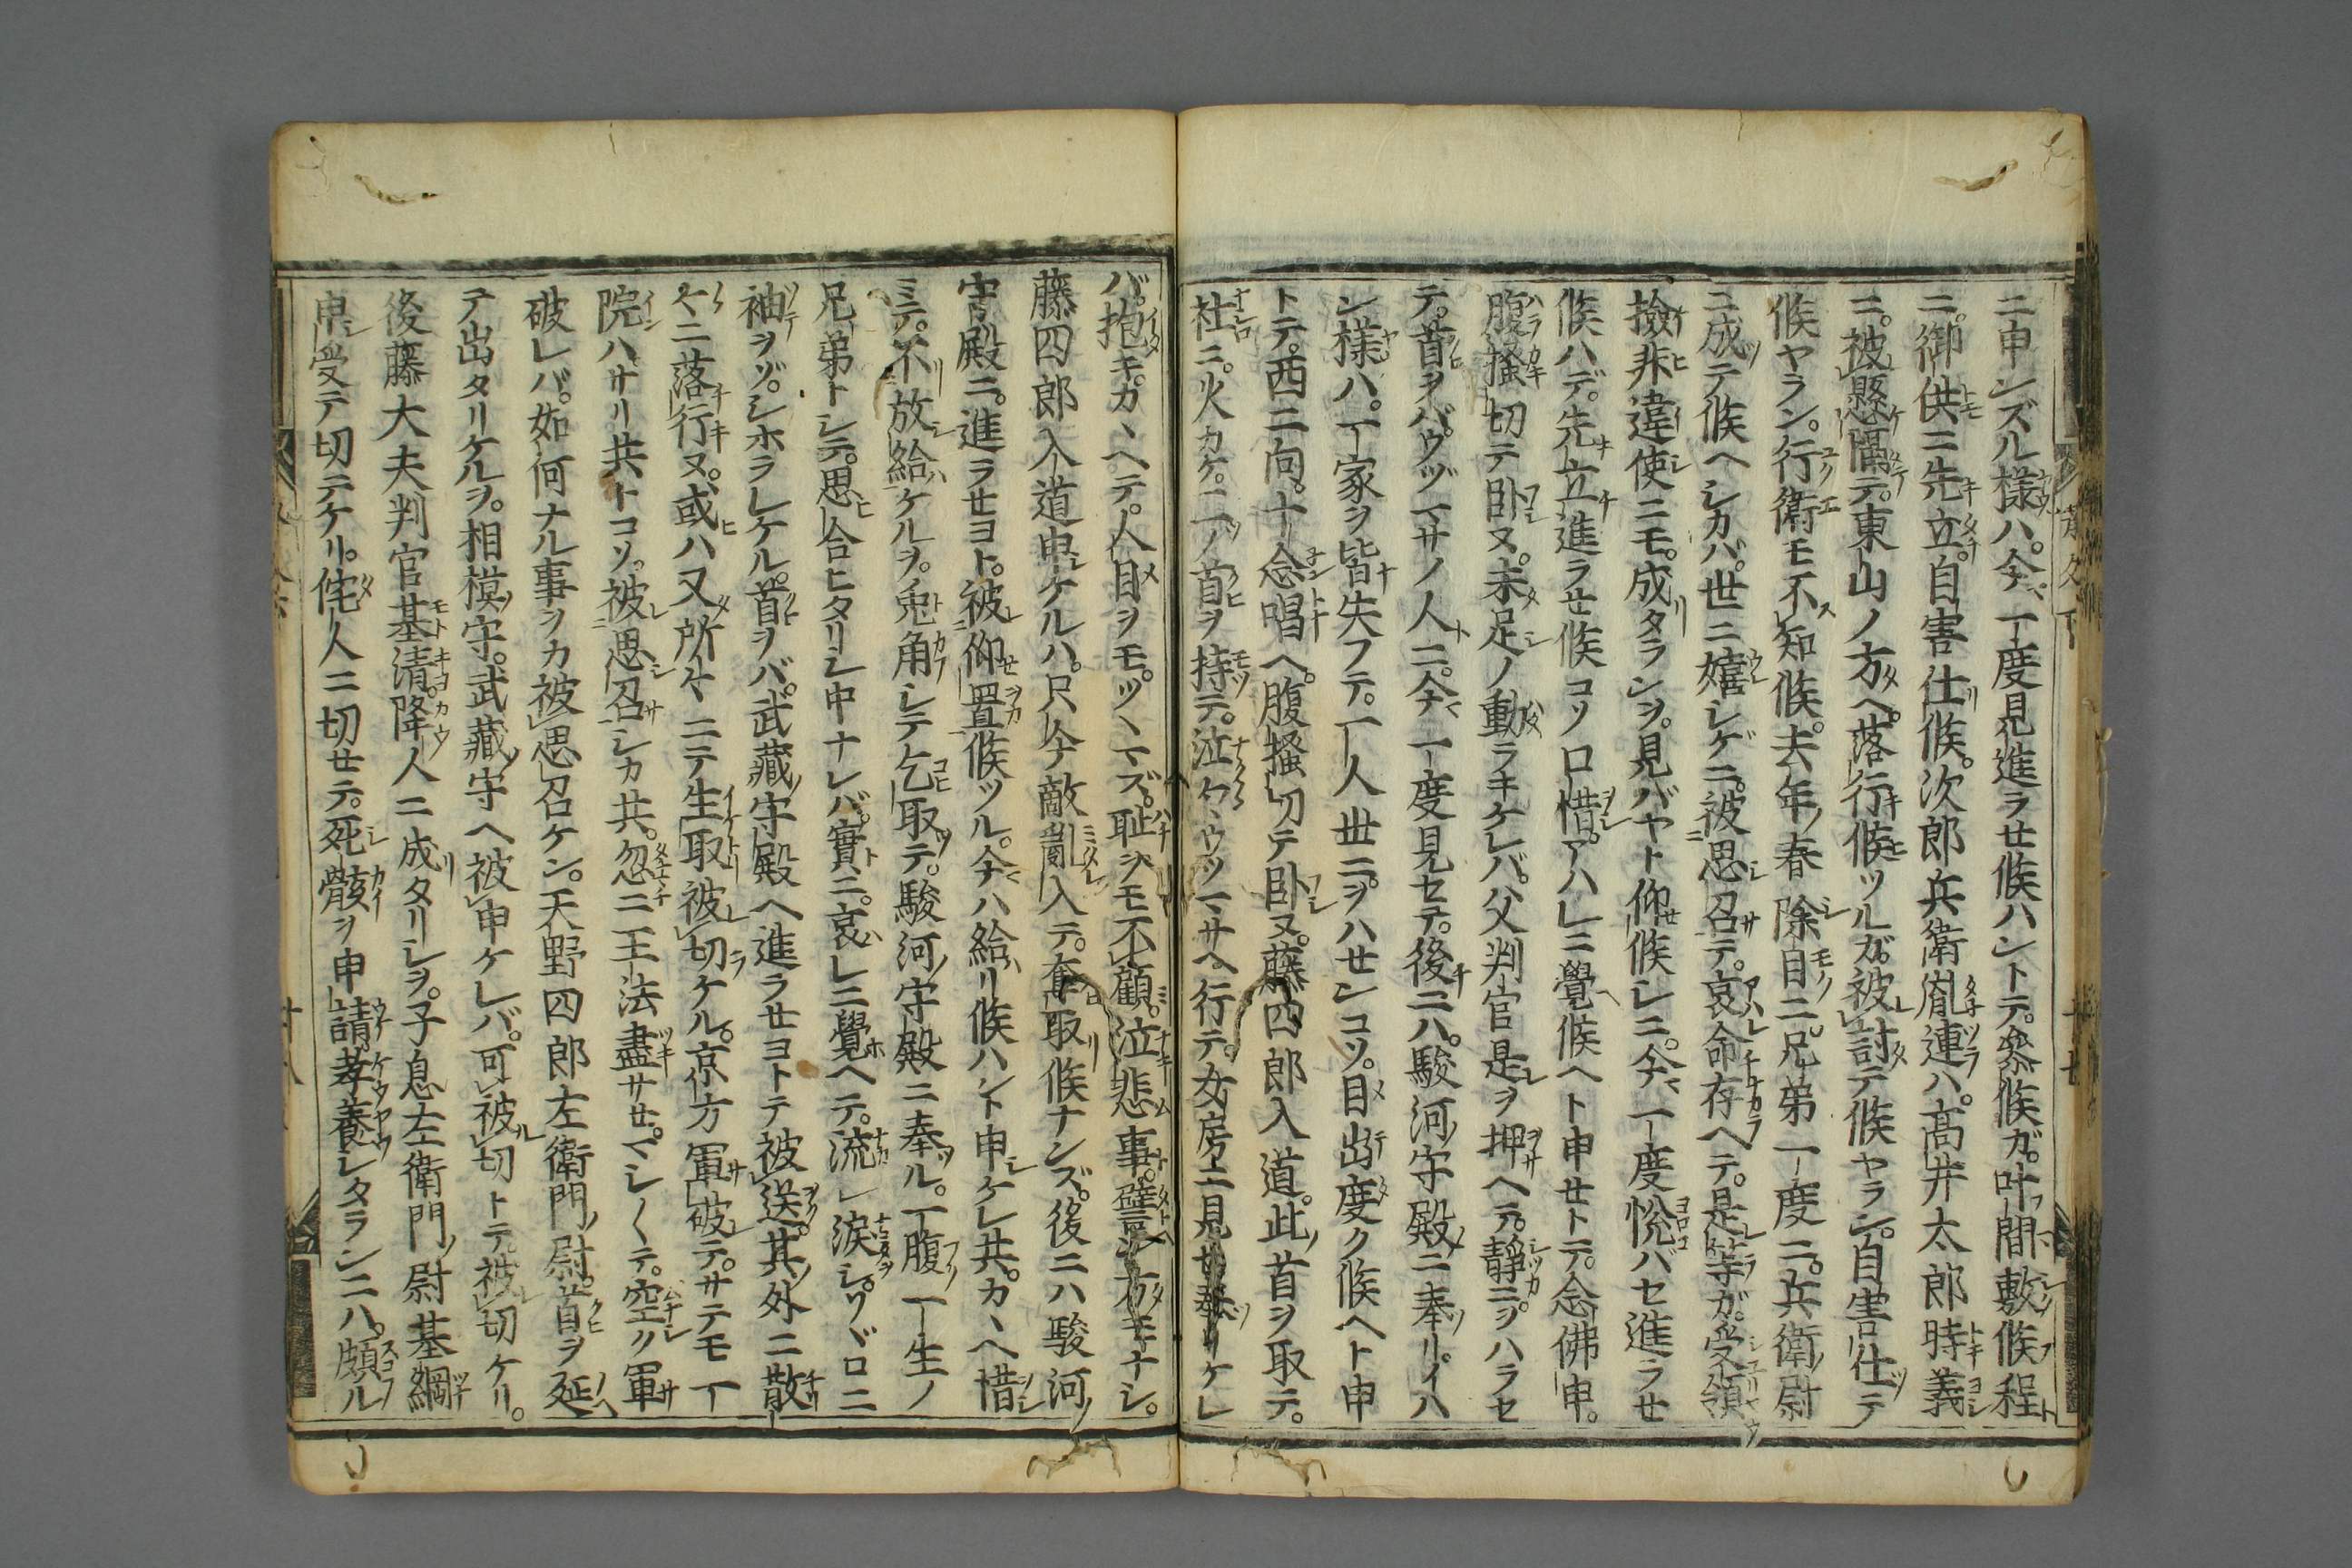 ニ申ンズル様ハ。今一度見進ラセ候ハントテ。参候ガ。叶間敷候程
ニ。御供ニ先立。自害仕候。次郎兵衛胤連ハ。髙井太郎時義
ニ。被懸隔テ。東山ノ方ヘ。落行候ツルガ。被討テ候ヤラン。自害仕テ
候ヤラン。行衛モ不知候。去年ノ春除目ニ。兄弟一度ニ。兵衛ノ尉
ニ成テ候ヘシカバ。世ニ嬉シゲニ。被思召テ。哀命存ヘテ。是等ガ。受領
撿非違使ニモ。成タランヲ。見バヤト仰候シニ。今一度悦バセ進ラセ
候ハデ。先立進ラセ候コソ口惜。アハレニ覺候ヘト申セトテ。念佛申。
腹掻切テ卧ヌ。未足ノ動ラキケレバ。父判官是ヲ押ヘテ。静ニヲハラセ
テ。首ヲバウヅマサノ人ニ。今一度見セテ。後ニハ。駿河ノ守殿ニ奉リ。イハ
ン様ハ。一家ヲ皆失フテ。一人世ニ。ヲハセンコソ。目出度ク候ヘト申
トテ。西ニ向。十念唱ヘ。腹掻切テ卧ヌ。藤四郎入道。此首ヲ取テ。
社ニ。火カケ。二ノ首ヲ持テ。泣々ウツマサヘ行テ。女房ニ見セ奉リケレ
バ。抱キ。カヽヘテ。人目ヲモ。ツヽマズ。耻ヲモ不顧。泣悲事。譬ヘ方モナシ。
藤四郎入道申ケルハ。只今敵亂入テ。奪取候ナンズ。後ニハ駿河ノ
守殿ニ。進ラセヨト。被仰置候ツル。今ハ給リ候ハント申ケレ共。カヽヘ惜
ミテ。不放給ケルヲ。兎角シテ乞取テ。駿河ノ守殿ニ奉ル。一腹一生ノ
兄弟トシテ。思合ヒタリシ中ナレバ。實ニ。哀レニ覺ヘテ。流シ涙ソヾロニ
袖ヲゾ。シホラレケル。首ヲバ。武藏ノ守殿ヘ進ラセヨトテ被送。其ノ外ニ散
々ニ落行ヌ。或ハ又所々ニテ生取被切ケル。京方軍破テ。サテモ一
院ハ。サリ共トコソ。被思召シカ共。忽ニ王法盡サセ。マシ〳〵テ。空ク軍
破レバ。如何ナル事ヲカ被思召ケン。天野四郎左衛門ノ尉。首ヲ延
テ出タリケルヲ。相模ノ守。武藏ノ守ヘ被申ケレバ。可被切トテ。被切ケリ。
後藤大夫判官基清。降人ニ成タリシヲ。子息左衛門ノ尉基綱
申受テ切テケリ。侘人ニ切セテ。死骸ヲ申請。孝養シタランニハ。頗ル